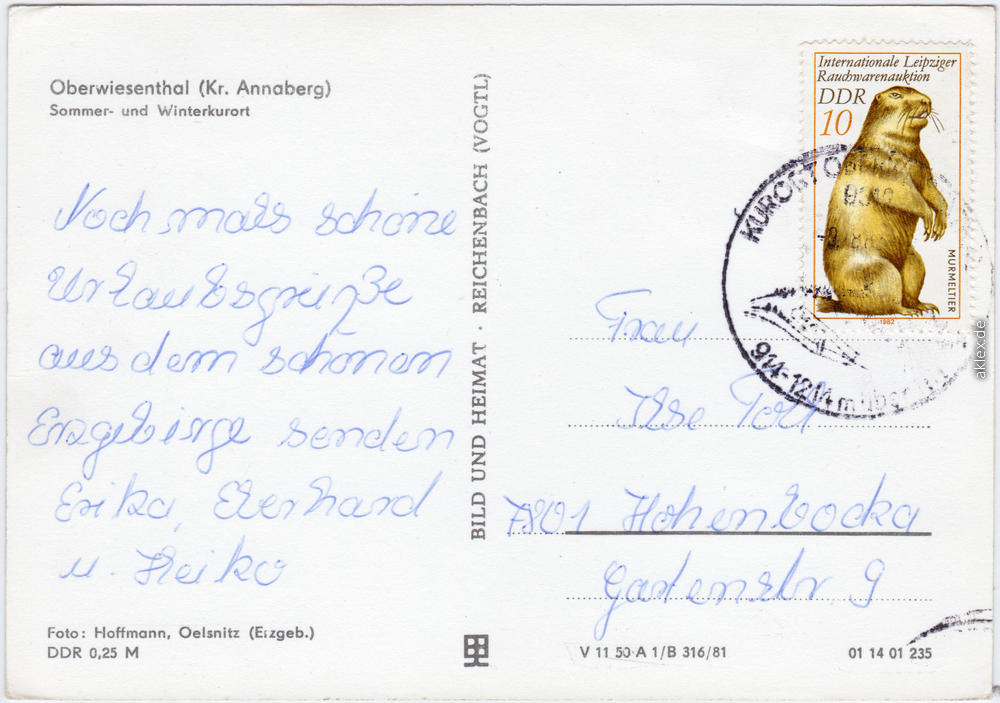 Oberwiesenthal (Kr. Annaberg)
Sommer- und Winterkurort
Noch mals schöne
Urlaubsgrüße
aus dem schönen
Erzgebirge senden
Erika, Eberhard
u. Heiko
Foto: Hoffmann, Oelsnitz (Erzgeb.)
DDR 0,25 M
BILD UND HEIMAT · REICHENBACH (VOGTL)
Internationale Leipziger
Rauchwarenauktion
DDR
10
MURMELTIER
1982
KURORT
914-1214 m
Frau
Ilse
7801 Hohenbocka
Gartenstr. 9
V 11 50 A 1/B 316/81
01 14 01 235
aklex.de